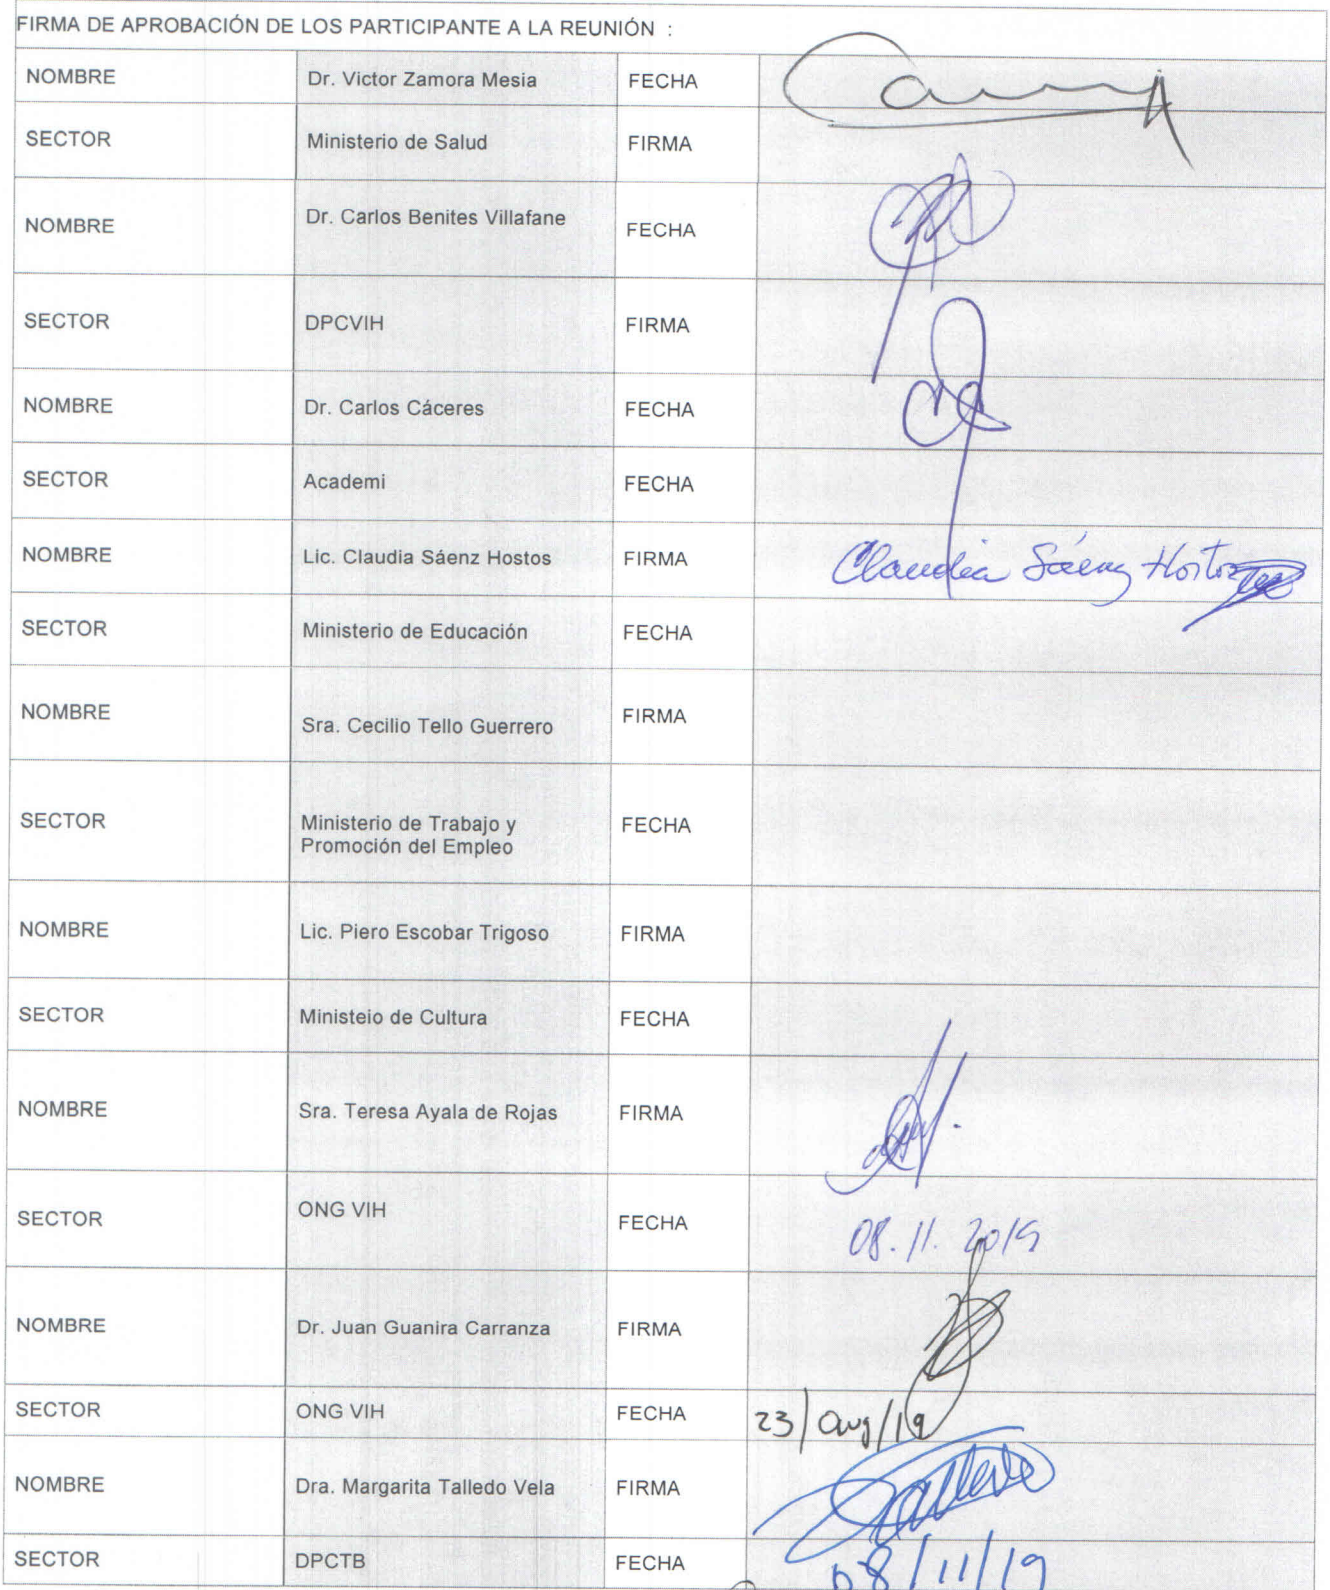 FIRMA DE APROBACIÓN DE LOS PARTICIPANTE A LA REUNIÓN :
NOMBRE Dr. Victor Zamora Mesia FECHA
SECTOR Ministerio de Salud FIRMA
NOMBRE Dr. Carlos Benites Villafane FECHA
SECTOR DPCVIH FIRMA
NOMBRE Dr. Carlos Cáceres FECHA
SECTOR Academi FECHA
NOMBRE Lic. Claudia Sáenz Hostos FIRMA Claudia Sáenz Hostos
SECTOR Ministerio de Educación FECHA
NOMBRE Sra. Cecilio Tello Guerrero FIRMA
SECTOR Ministerio de Trabajo y
Promoción del Empleo FECHA
NOMBRE Lic. Piero Escobar Trigoso FIRMA
SECTOR Ministeio de Cultura FECHA
NOMBRE Sra. Teresa Ayala de Rojas FIRMA
SECTOR ONG VIH FECHA 08.11.2019
NOMBRE Dr. Juan Guanira Carranza FIRMA
SECTOR ONG VIH FECHA 23/Aug/19
NOMBRE Dra. Margarita Talledo Vela FIRMA Talledo
SECTOR DPCTB FECHA 08/11/19